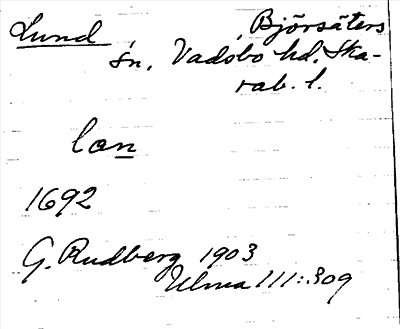 Lund, Björsäters
sn, Vadsbo hd. Ska-
rab. l.
lan
1692
G. Rudberg 1903
Ulma 111:309